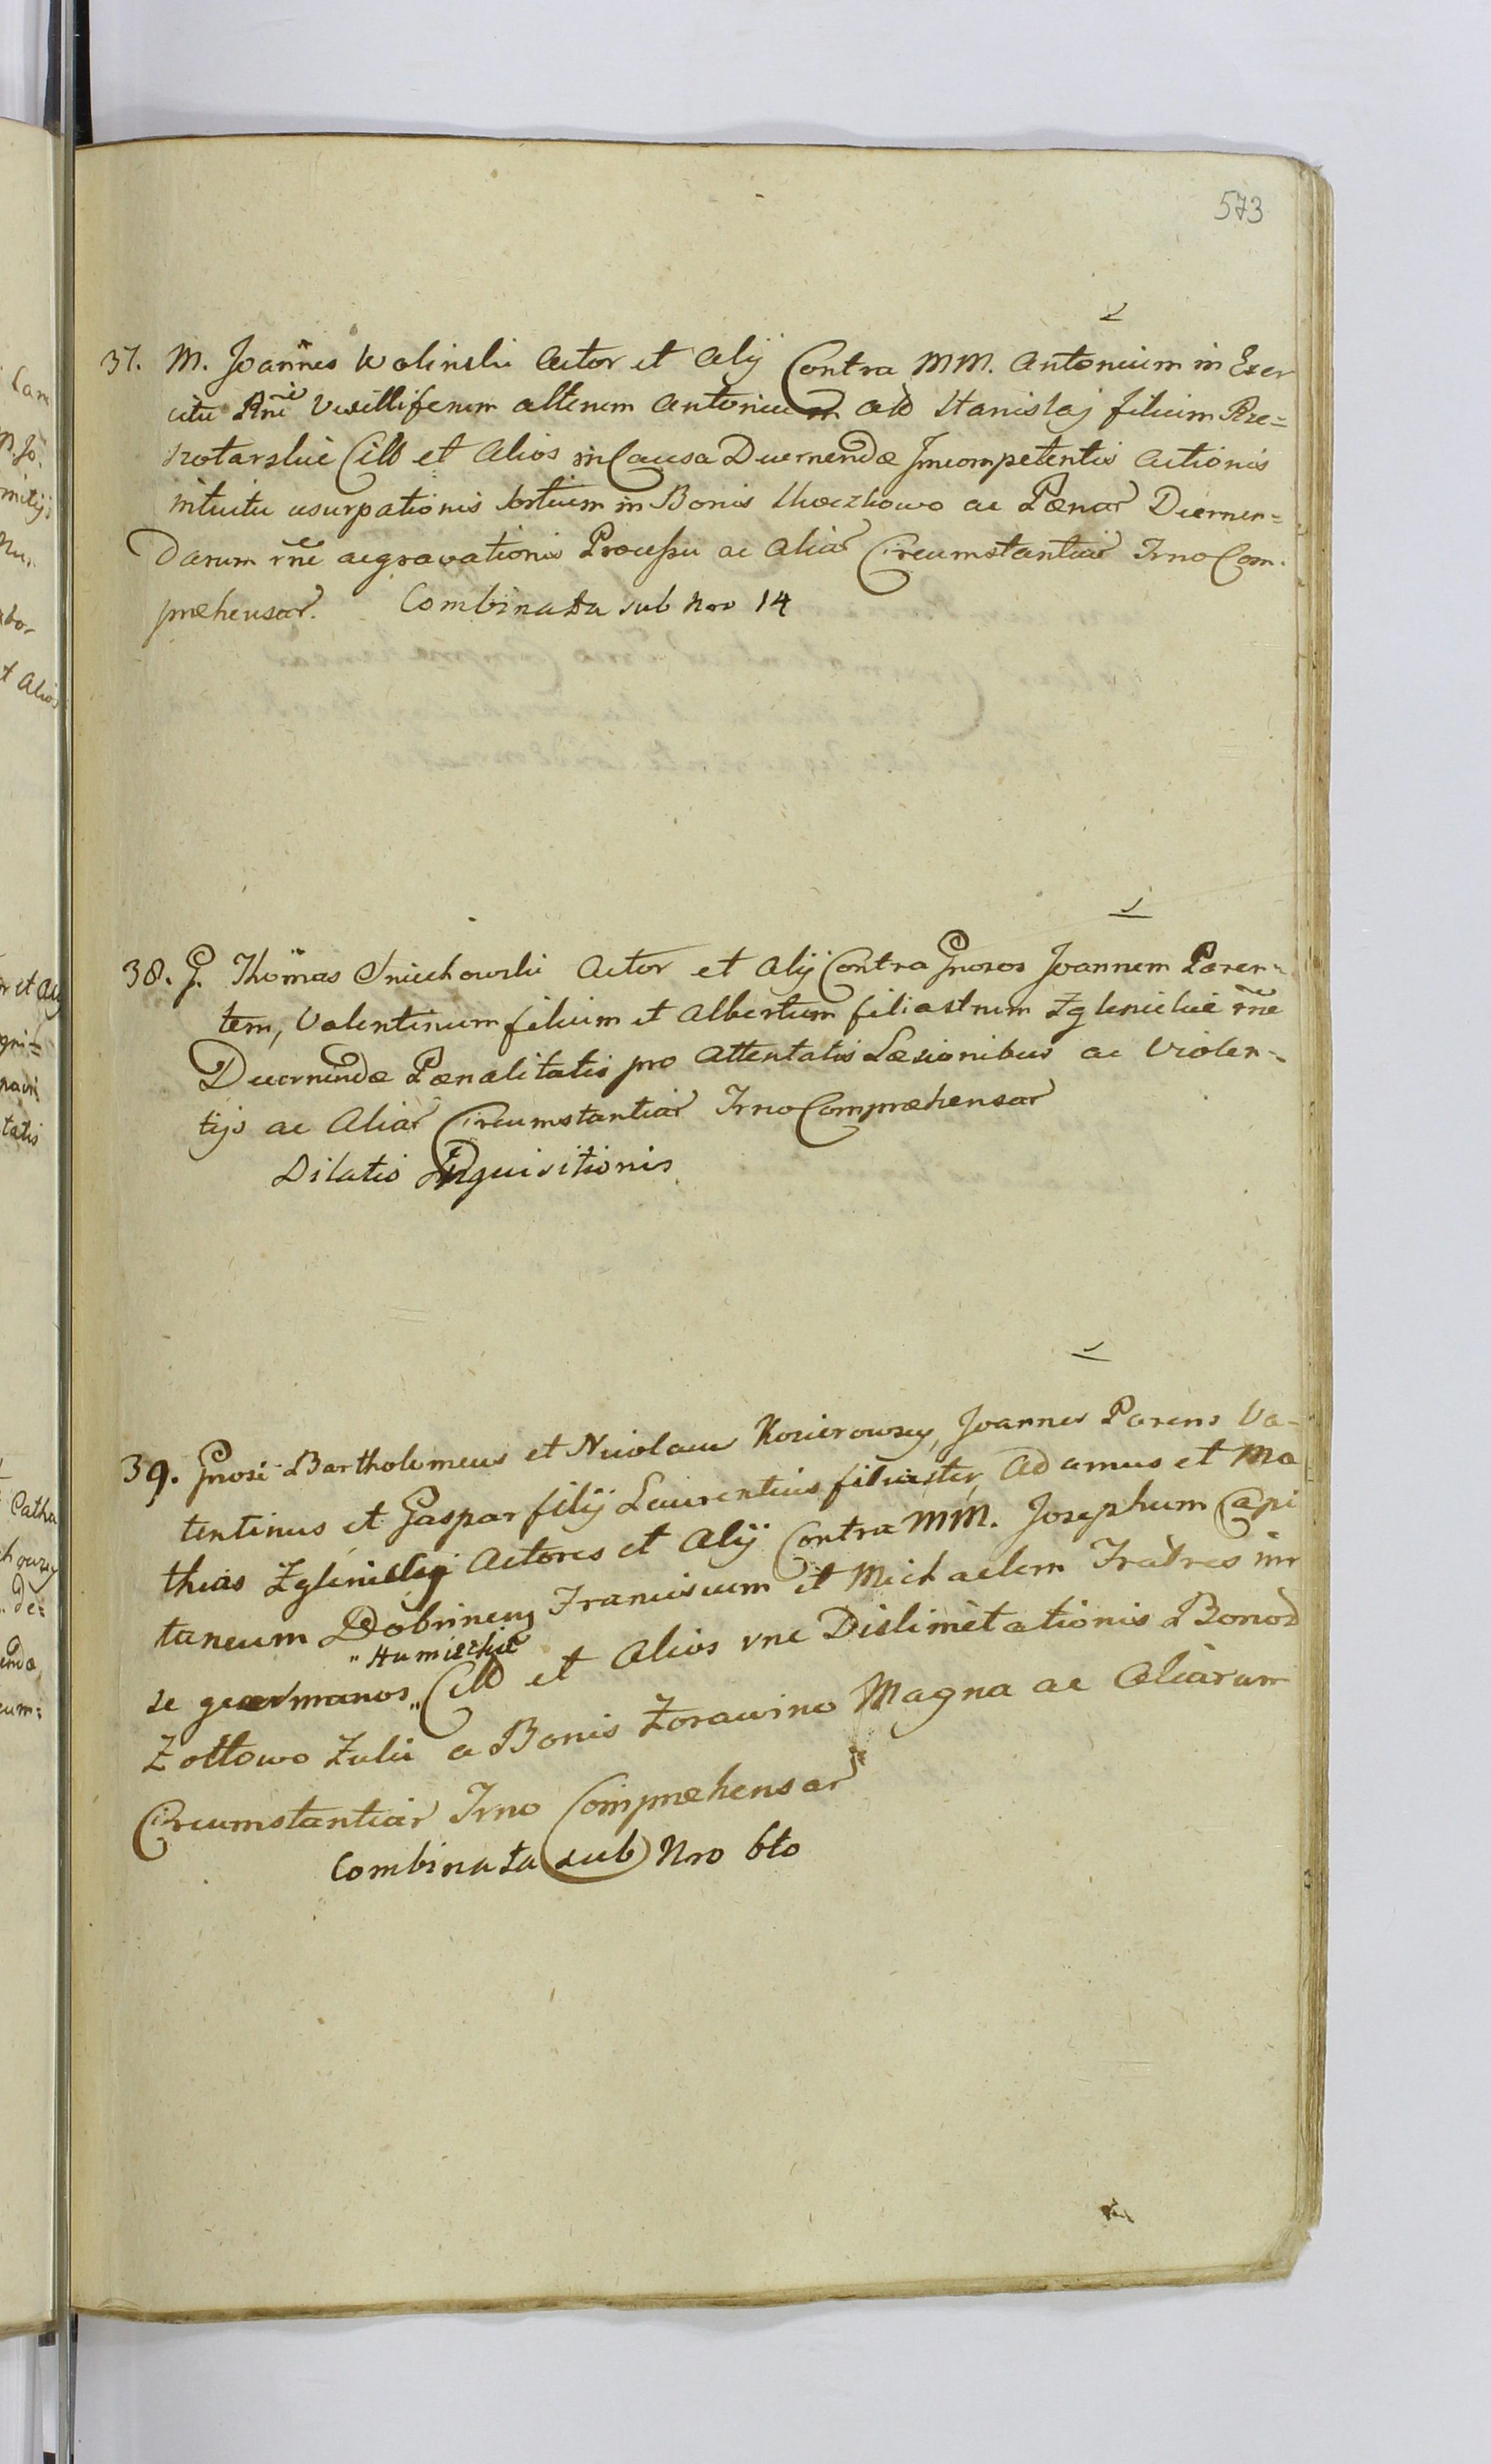 573
37. M. Joannes Wolinski Actor et Alij Contra MM. Antonium in Exer
citu Rni Vexilliferum alterum Antonium olo Stanislaj filium Prze=
Citt et Alios in Causa Decernendæ Incompetentis Actionis
intuitu usurpationis Sortium in Bonis ac Pænar Decernen=
darum rne aggravationis Processu ac aliar Circumstantiar Trno Com.
præhensar. Combinata sub Nro 14
38. G. Thomas Sniechowski Actor et Alij Contra Gnosos Joannem Paren=
tem, Valentinum filium et Albertum filiastrum Zglenickie rne
Decernendæ Pænalitatis pro attentatis Læsionibus ac Violen=
tijs ac Aliar Circumstantiar Trno Compræhensar
Dilatio Inquisitionis
39. Gnosi Bartholomeus et Nicolaus Kosierowscy, Joannes Parens Va=
lentinus et Gaspar filij Laurentius filiaster, Adamus et Ma
thias Zglenickij Actores et Alij Contra MM. Josephum Capi
taneum Dobrinen Franciscum et Michaelem Fratres inr
"Humieckie
se germanos" Citt et Alios rne Dislimitationis Bonor
Zottowo Zulii a Bonis Zorawino Magna ac Aliarum
Circumstantiar Trno Compræhensar
Combinata sub Nro 6to